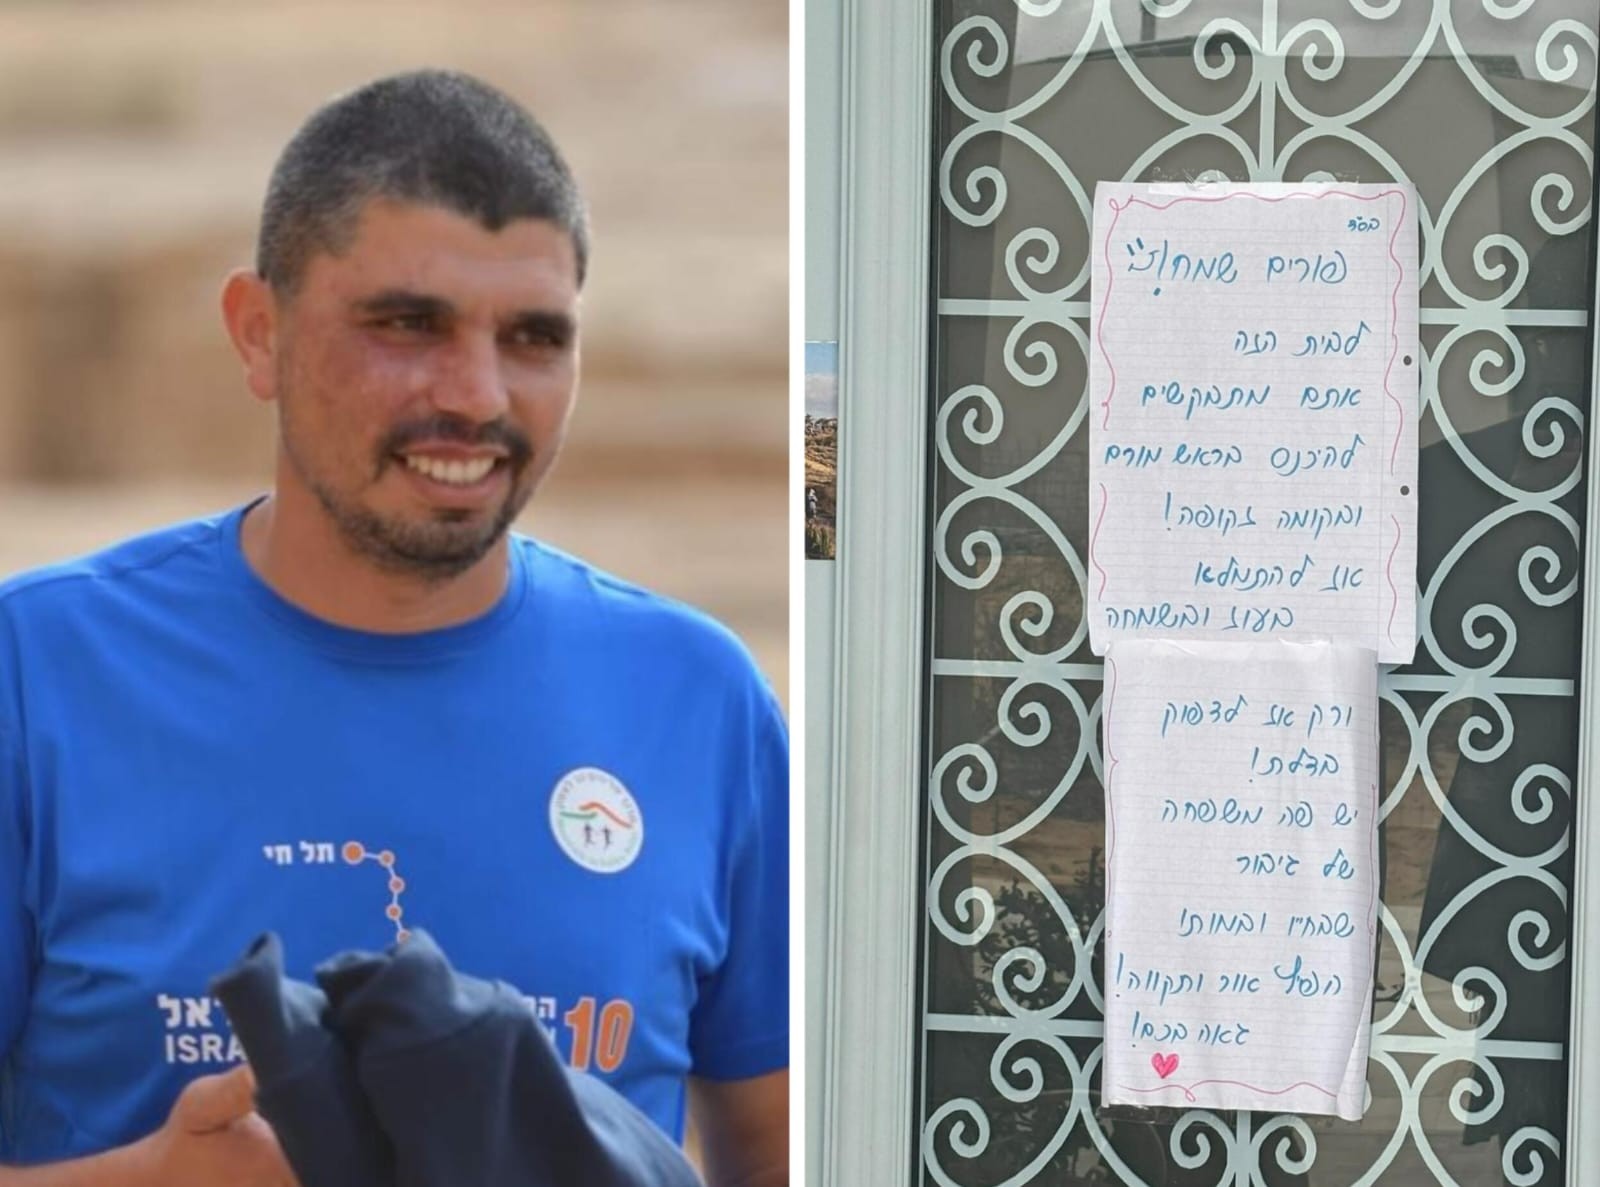 תל חי
ISRA
10
בס"ד
פורים שמח!
לבית הזה
אתם מתבקשים
להיכנס בראש מורם
ובקומה זקופה!
אז להתמלא
בעוז ובשמחה
ורק אז לדפוק
בדלת!
יש פה משפחה
של גיבור
שבחייו ובמותו
הפיץ אור ותקווה!
גאה בכם!